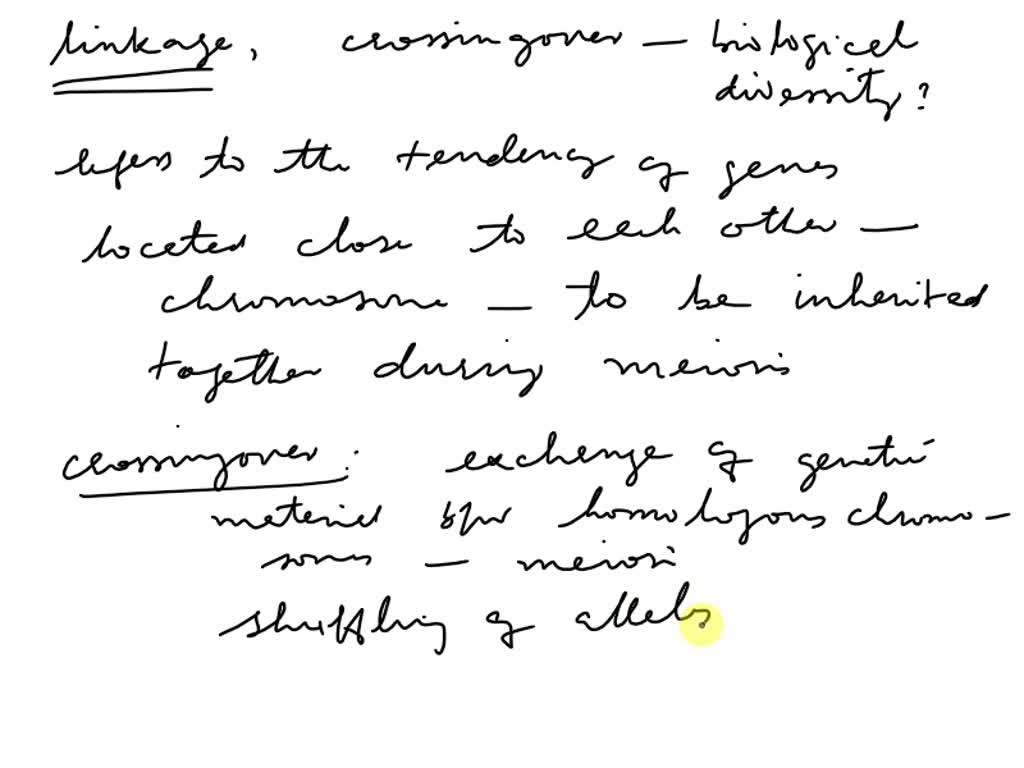 linkage, crossingover — biological
diversity?
refers to the tendency of genes
located close to each other —
chromosome — to be inherited
together during meiosis
crossingover: exchange of genetic
material btw homologous chromo-
somes — meiosis
shuffling of allels